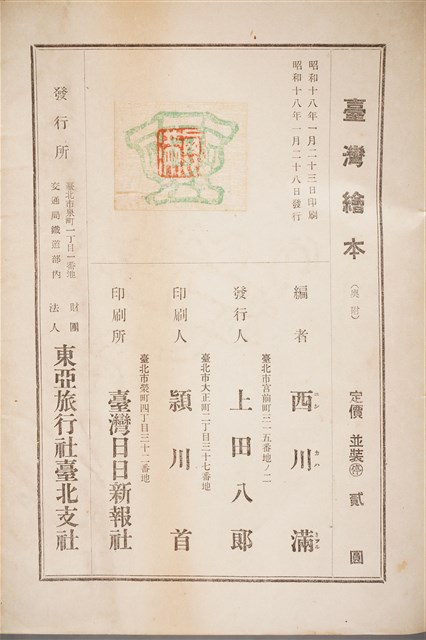 臺灣繪本
(奧附)
定價 並裝㊕貳圓
昭和十八年一月二十三日印刷
昭和十八年一月二十八日發行
編者 西川滿
ニシ カハ ミツル
臺北市宮前町三一五番地ノ二
發行人 上田八郎
臺北市大正町二丁目三十七番地
印刷人 潁川首
臺北市榮町四丁目三十二番地
印刷所 臺灣日日新報社
發行所
臺北市泉町一丁目一番地
交通局鐵道部內
財團
法人
東亞旅行社臺北支社